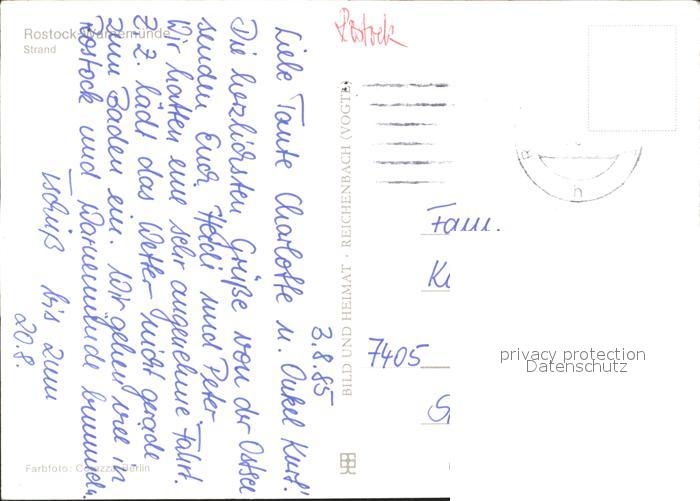 Rostock
Rostock-Warnemünde
Strand
3.8.85
Liebe Tante Charlotte u. Onkel Kurt!
Die herzlichsten Grüße von der Ostsee
senden Euch Heidi und Peter.
Wir hatten eine sehr angenehme Fahrt.
Z. Z. lädt das Wetter nicht gerade
zum Baden ein. Wir gehen viel in
Rostock und Warnemünde bummeln.
Tschüß bis zum
20.8.
Farbfoto: Berlin
BILD UND HEIMAT · REICHENBACH (VOGTL)
Fam.
7405
privacy protection
Datenschutz